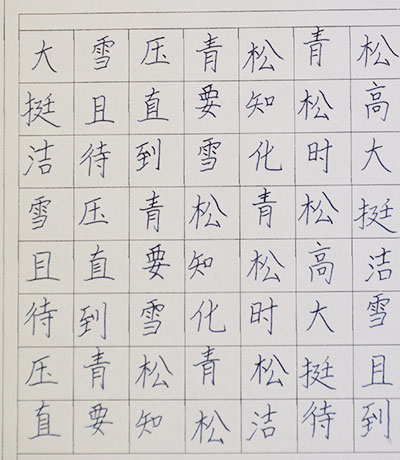 大雪压青松青松
挺且直要知松高
洁待到雪化时大
雪压青松青松挺
且直要知松高洁
待到雪化时大雪
压青松青松挺且
直要知松洁待到